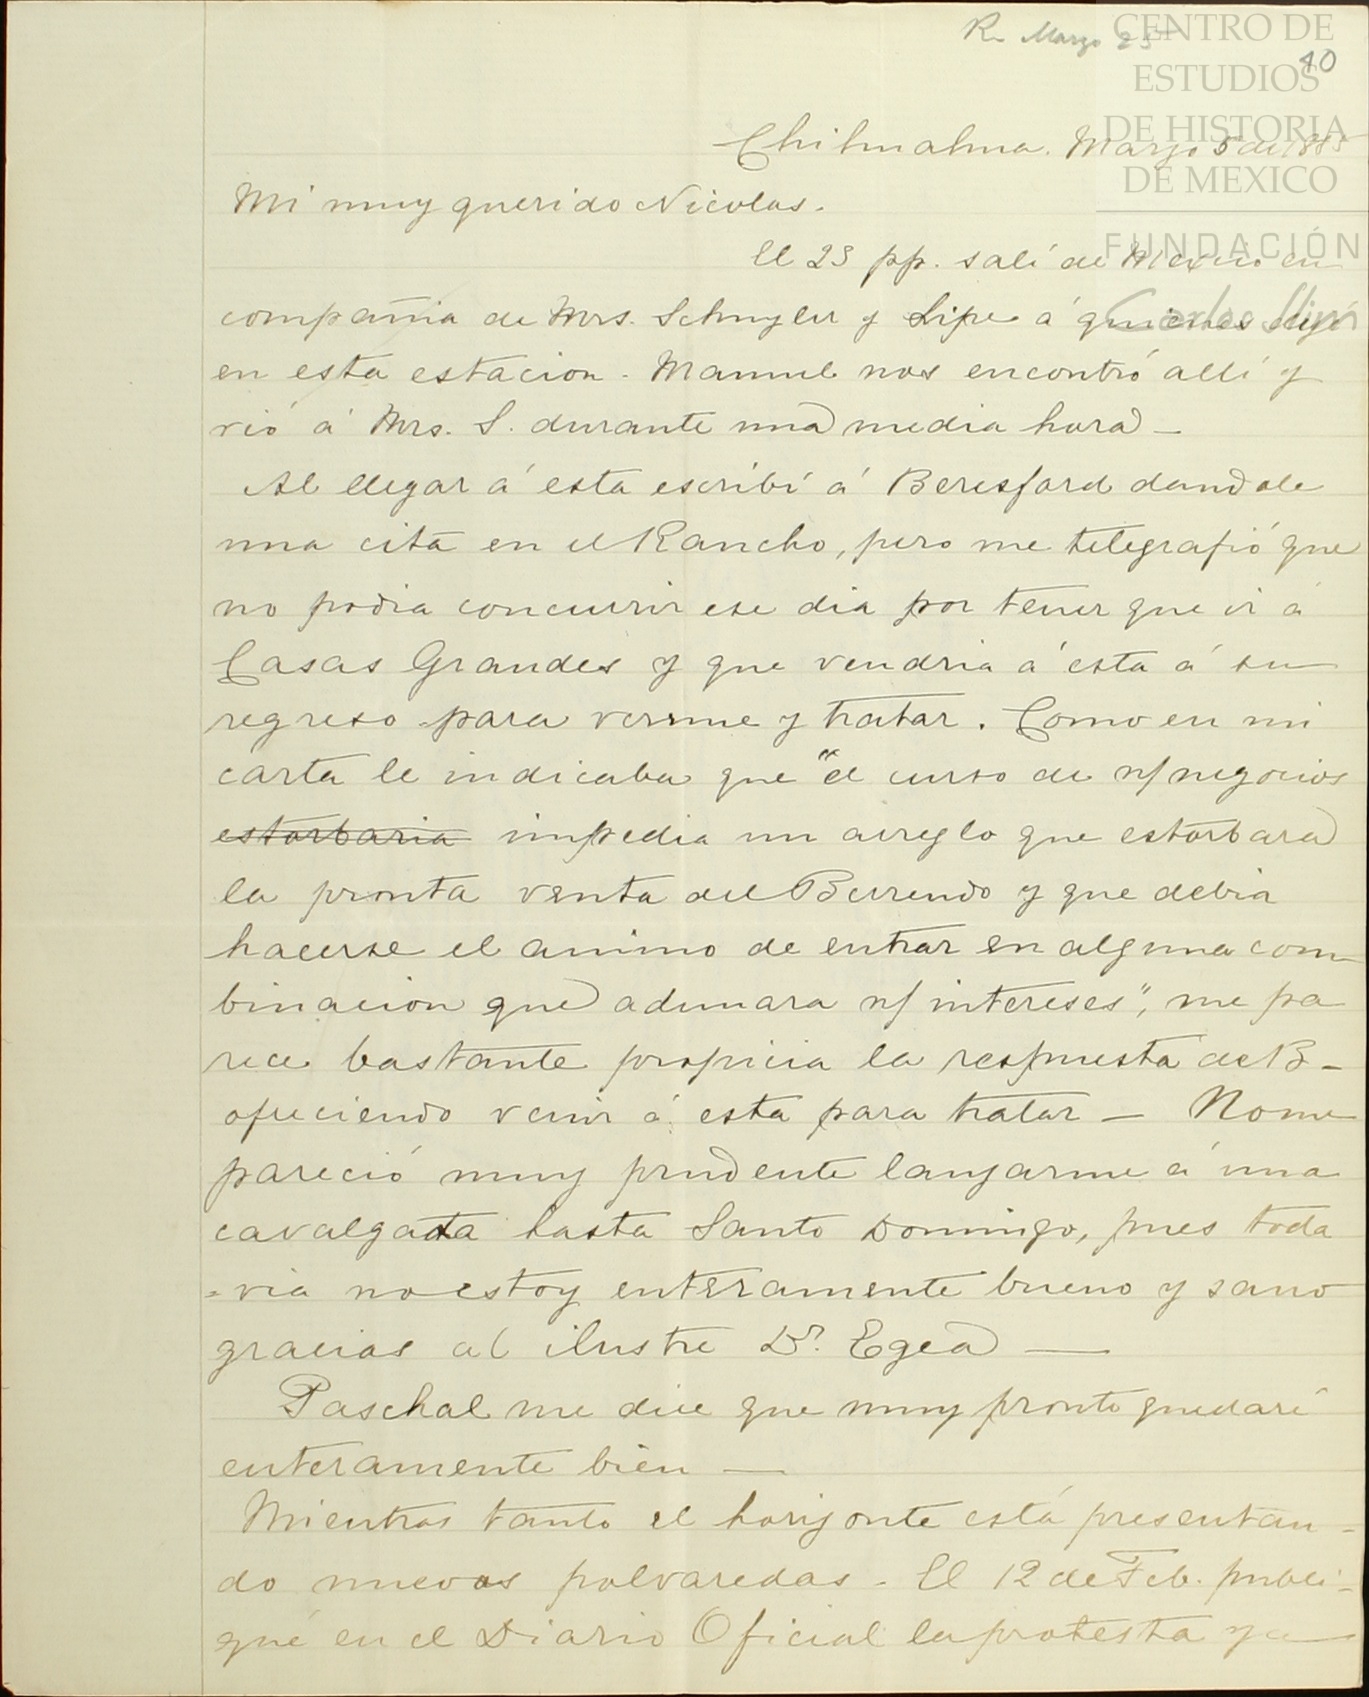 R. Marzo 25
40
CENTRO DE
ESTUDIOS
DE HISTORIA
DE MEXICO
FUNDACIÓN
Carlos Slim
Chihuahua. Marzo 5 de 1885
Mi muy querido Nicolas.
El 23 pp. salí de Mexico en
compañia de Mrs. Schuyler y Lipe á quienes dejé
en esta estacion. Manuel nos encontró allí y
vió á Mrs. S. durante una media hora —
Al llegar á esta escribí á Beresford dandole
una cita en el Rancho, pero me telegrafió que
no podia concurrir ese dia por tener que ir á
Casas Grandes y que vendria á esta á su
regreso para verme y tratar. Como en mi
carta le indicaba que "el curso de n/ negocios
estorbaria impedia un arreglo que estorbara
la pronta venta del Berrendo y que debia
hacerse el animo de entrar en alguna com
binacion que adunara n/ intereses", me pa
rece bastante propicia la respuesta de B—
ofreciendo venir á esta para tratar — No me
pareció muy prudente lanzarme á una
cavalgata hasta Santo Domingo, pues toda
=via no estoy enteramente bueno y sano
gracias al ilustre Dr. Egea —
Paschal me dice que muy pronto quedaré
enteramente bien —
Mientras tanto el horizonte está presentan=
do nuevas polvaredas. El 12 de Feb. publi=
qué en el Diario Oficial la protesta ya